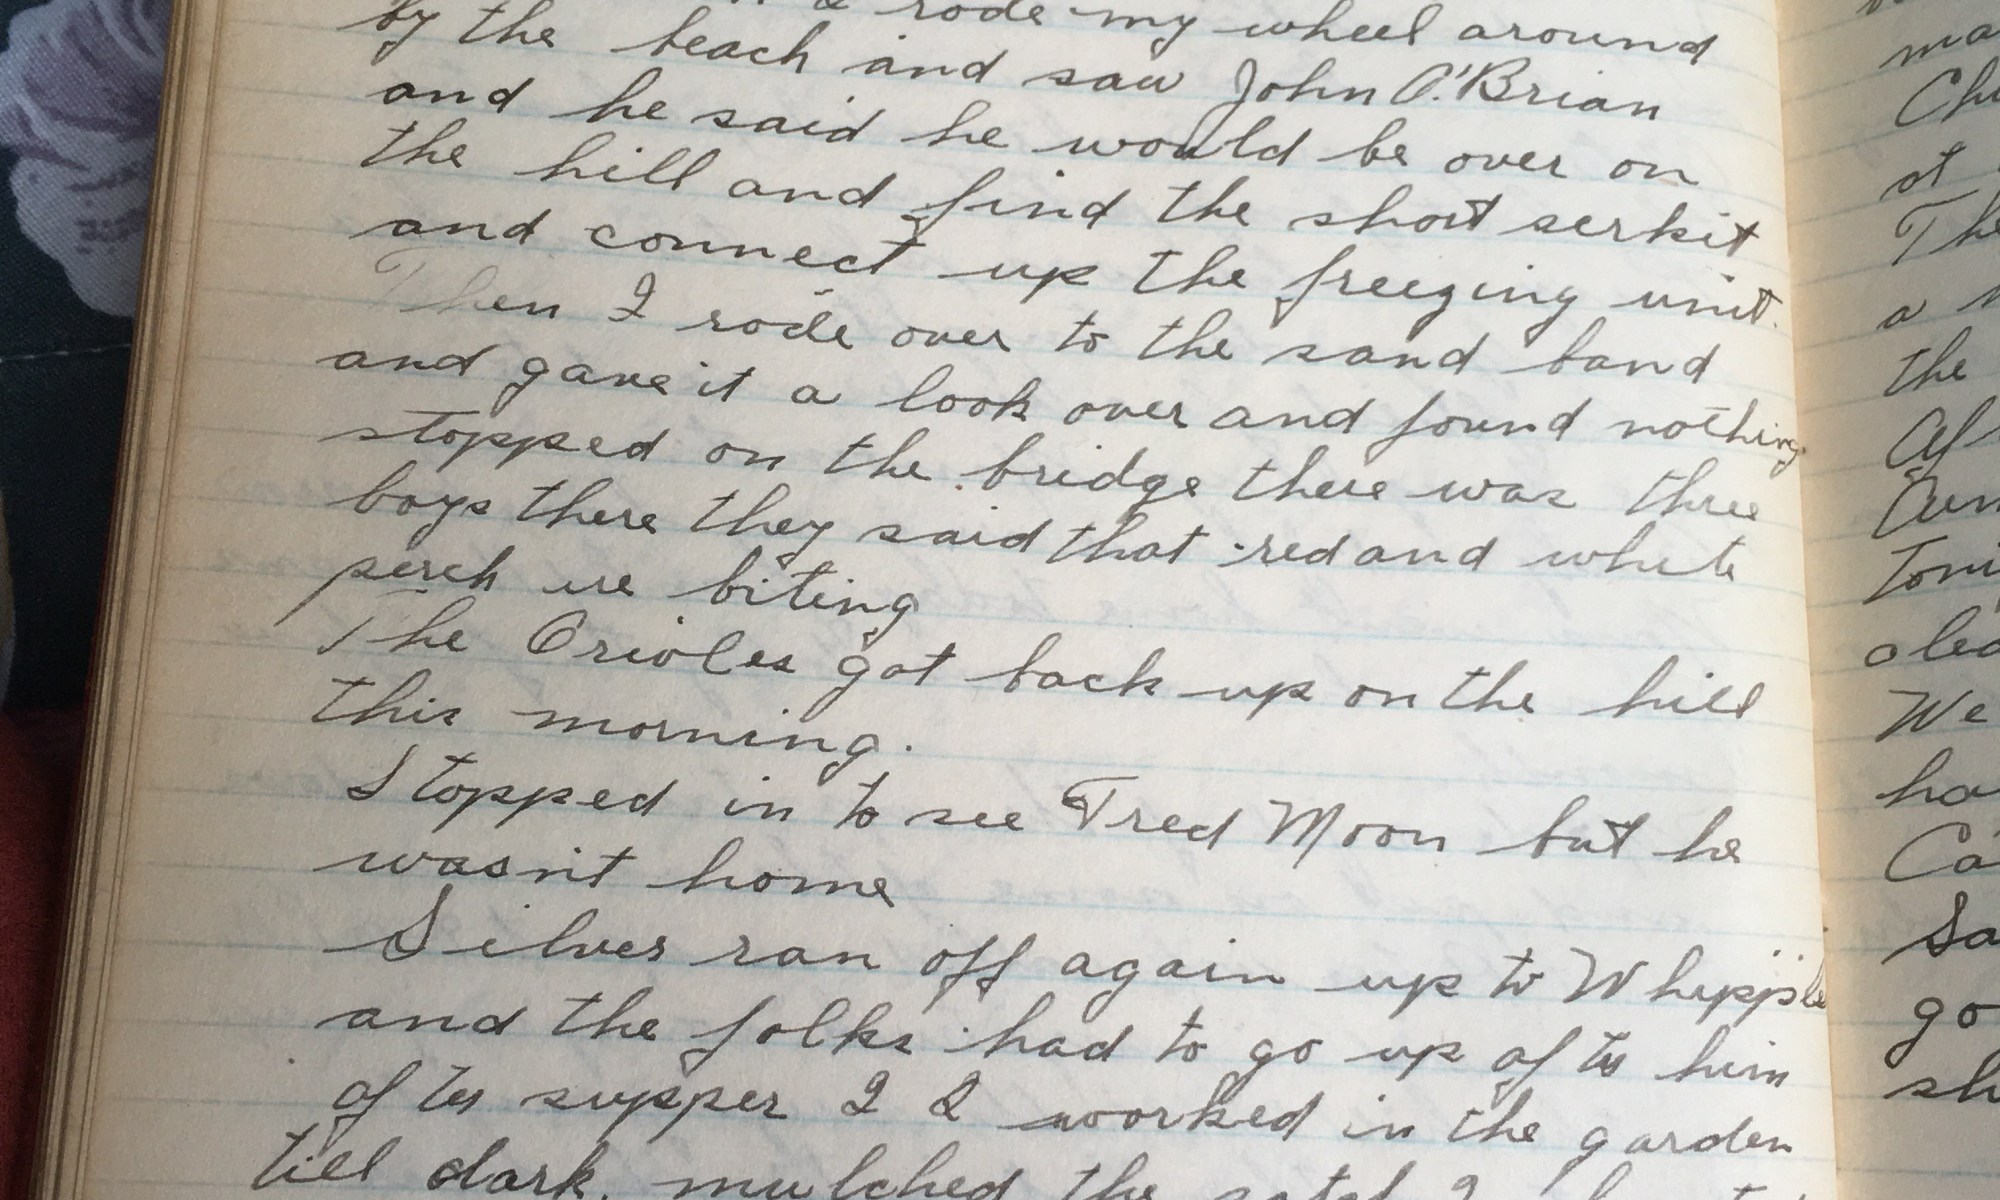 I rode my wheel around
by the beach and saw John O.'Brian
and he said he would be over on
the hill and find the short serkit
and connect up the freezing unit.
Then I rode over to the sand band
and gave it a look over and found nothing
stopped on the bridge there was three
boys there they said that red and white
perch ure biting
The Orioles got back up on the hill
this morning.
Stopped in to see Fred Moon but he
wasn't home
Silver ran off again up to Whipple
and the folks had to go up after him
after supper I worked in the garden
till dark. mulched the
ma
Ch
at
The
a
the
Af
Toni
We
ha
Ca
Sa
go
sh